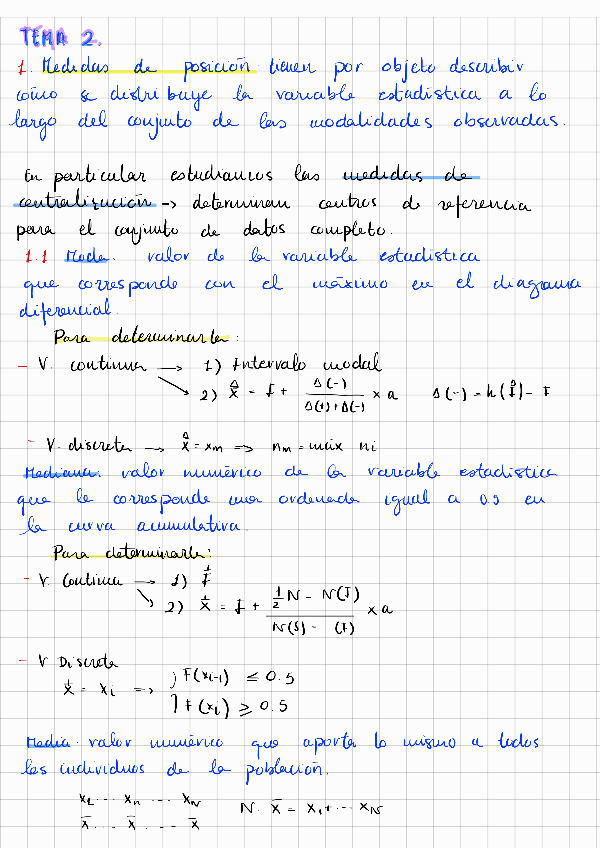 TEMA 2.
1. Medidas de posición tienen por objeto describir
cómo se distribuye la variable estadística a lo
largo del conjunto de las modalidades observadas.
En particular estudiamos las medidas de
centralización -> determinan centros de referencia
para el conjunto de datos completo.
1.1 Moda. valor de la variable estadística
que corresponde con el máximo en el diagrama
diferencial.
Para determinarla:
- V. continua → 1) Intervalo modal
2) x̂ = I + Δ(-) / Δ(+)+Δ(-) × a Δ(-) = h(Î) - I
- V. discreta → x̂ = xm => nm = máx ni
Mediana. valor numérico de la variable estadística
que le corresponde una ordenada igual a 0.5 en
la curva acumulativa.
Para determinarla:
- V. Continua → 1) I
2) x = I + ½N - N(I) / N(S) - (I) × a
- V Discreta
x = xi => F(xi-1) ≤ 0.5
F(xi) ≥ 0.5
Media. valor numérico que aporta lo mismo a todos
los individuos de la población.
x1 ... xn ... xN N. x̄ = x1 + ... xN
x̄ ... x̄ ... x̄